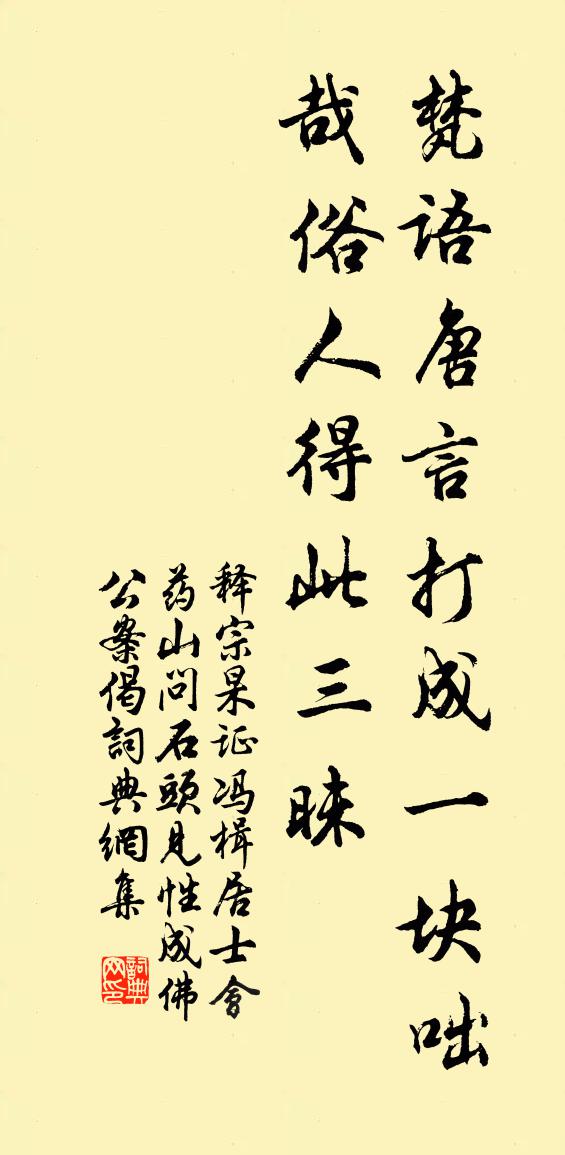 梵语唐言打成一块咄
哉俗人得此三昧
释宗杲证冯楫居士會
药山问石頭見性成佛
公案偈詞典網集
詞典
网印